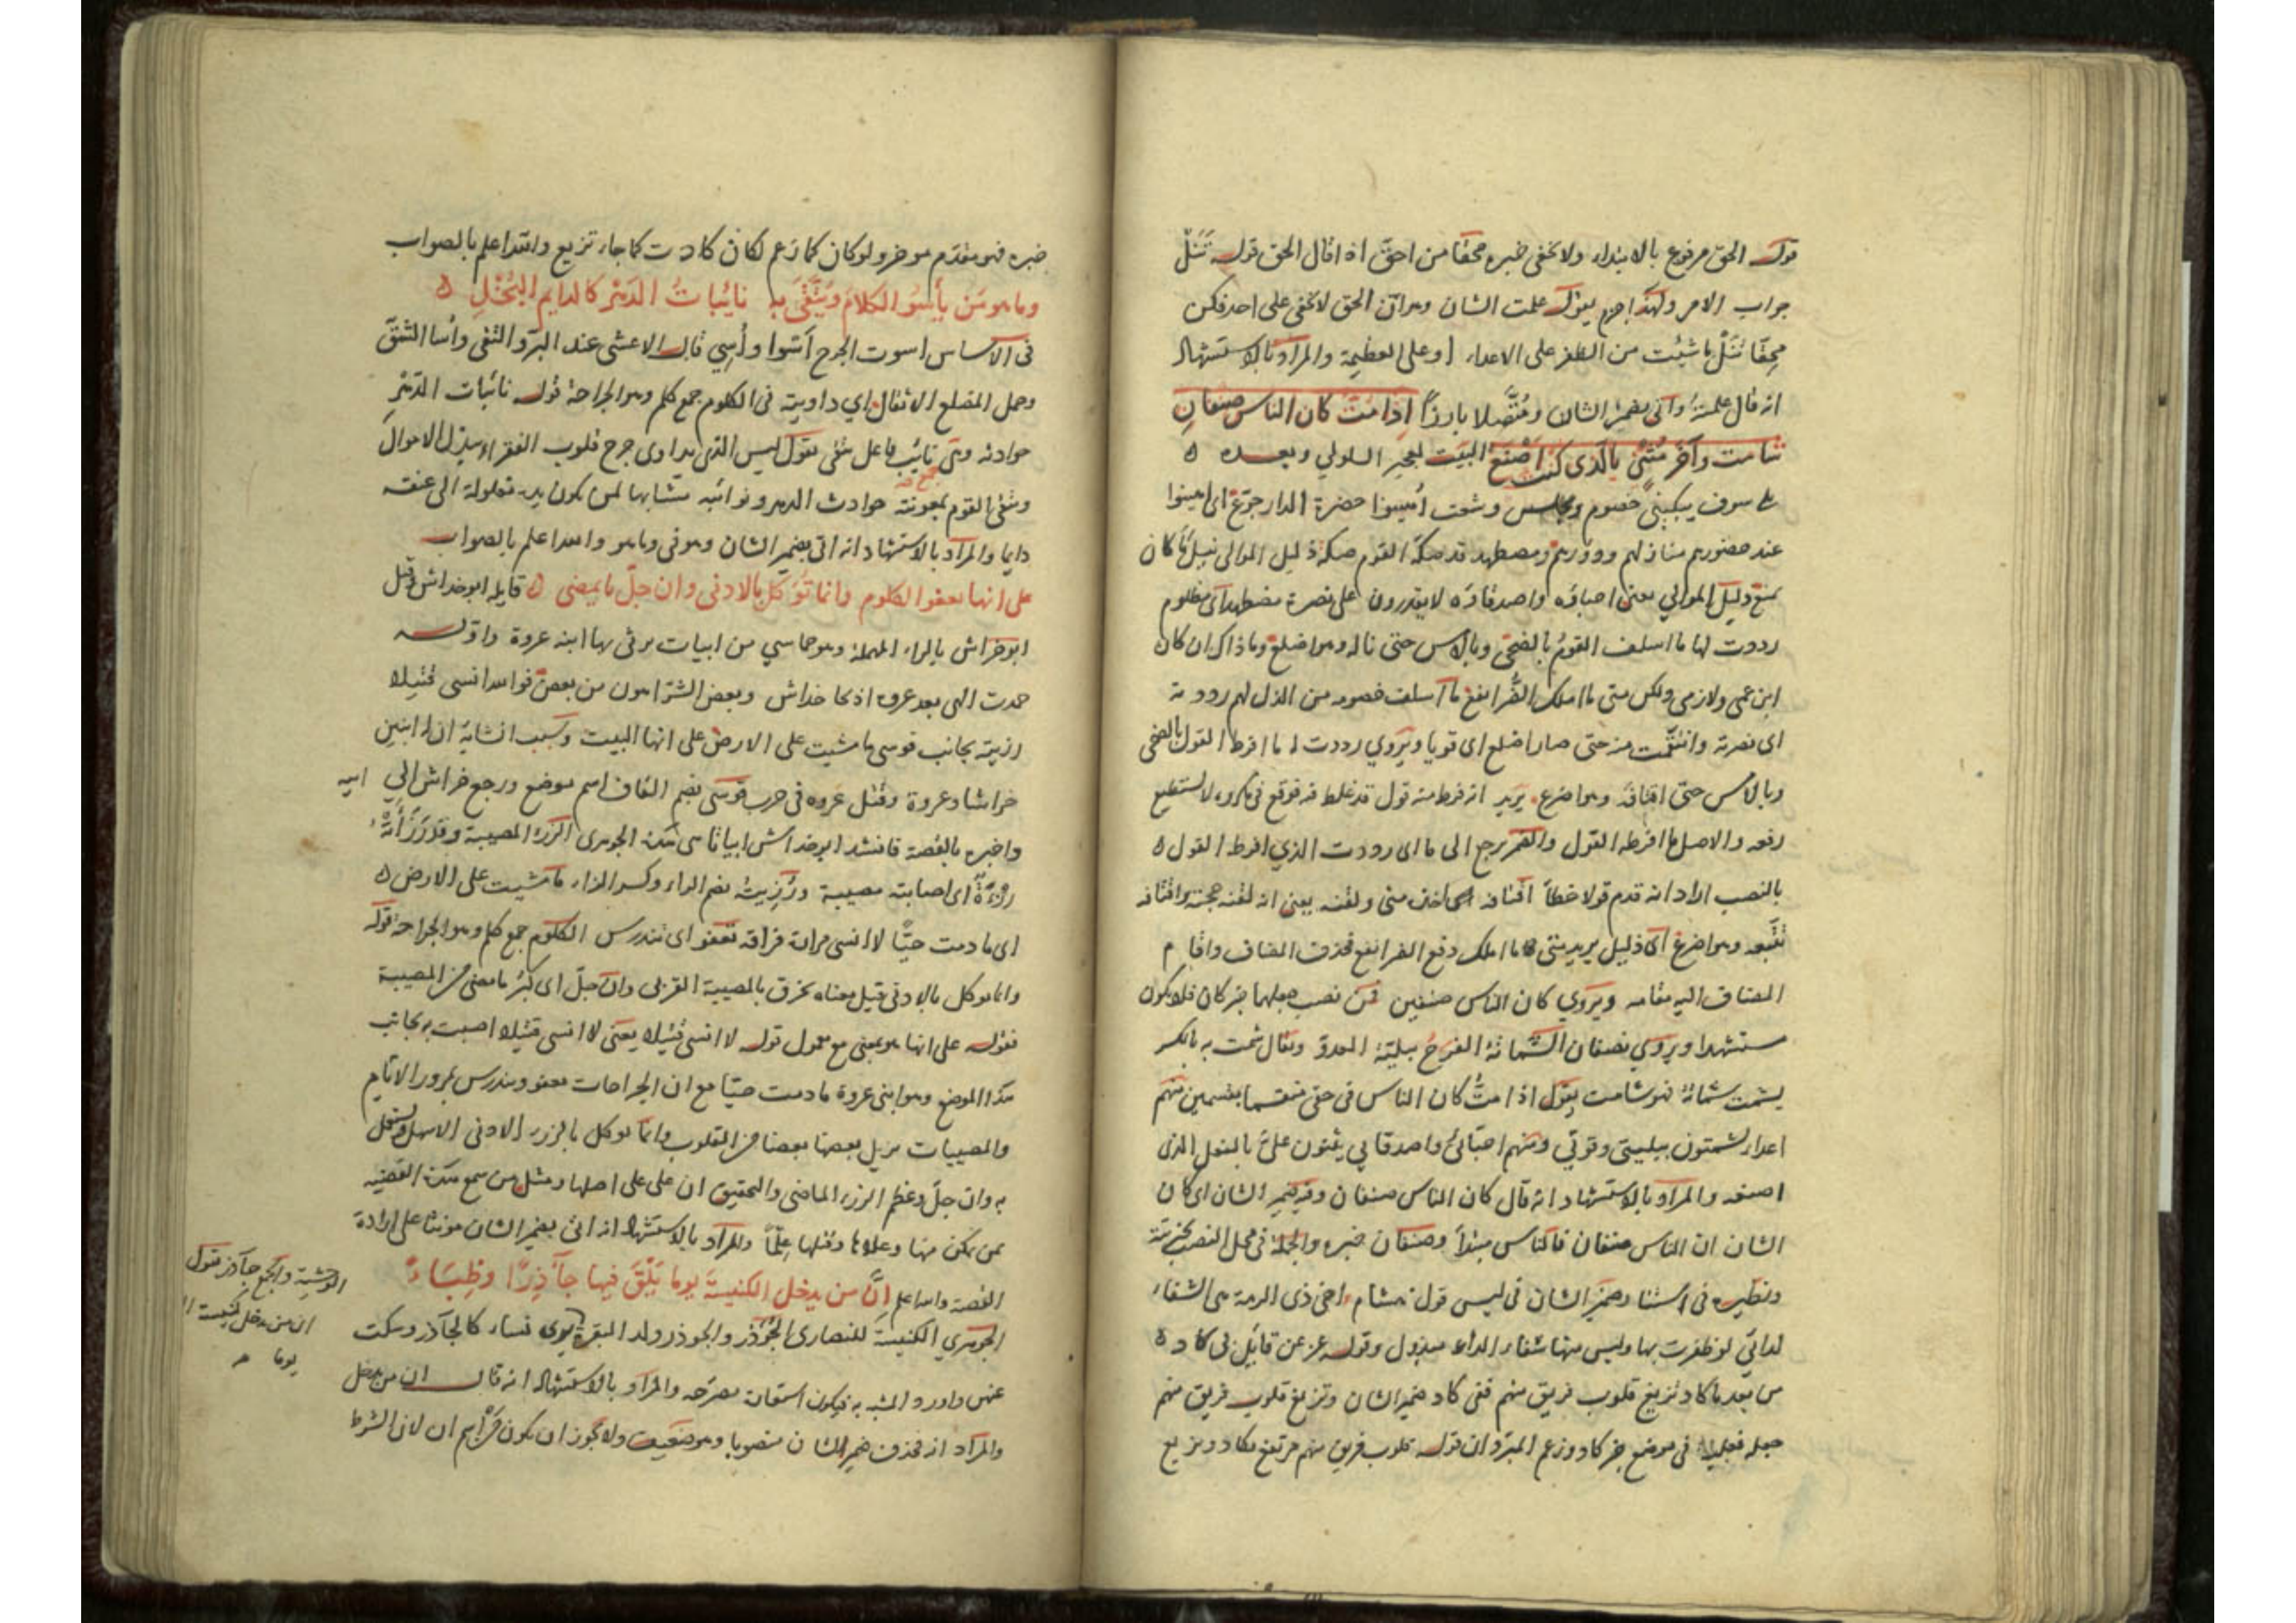 قوله الحق مرفوع بالابتداء ولا يخفى خبره محقا من احق اذا قال الحق قوله تنل
جواب الامر ولهذا جزم يقول علمت الشان وهو ان الحق لا يخفى على احد فكن
محقا تنل ما شئت من الظفر على الاعداء او على العظيمة والمراد بالاستشهاد
انه قال علمته واتى بضمير الشان ومتصلا بارزا اذا مت كان الناس صنفان
شامت وآخر مثن بالذى كنت اصنع البيت لعجير السلولي وبعده ه
سوف يبكيني خصوم ومجلس وشعث اهينوا حضرة الدار جوع اى اهينوا
عند حضورهم منازلهم ودورهم ومضطهد قد صكه القوم صكة ذليل الموالى نيل ما كان
يمنع ذليل الموالي يعنى احباؤه واصدقاؤه لا يقدرون على نصرة مضطهد اى مظلوم
رددت لها ما اسلف القوم بالضحى وبالامس حتى ناله وهو اضلع وما ذاك ان كان
ابن عمى ولا زمى ولكن متى ما املك الضر انفع ما اسلف خصومه من الذل لهم رددته
اى نصرته وانتقمت منه حتى صار اضلع اى قويا ويروي رددت له ما افرط القول بالضحى
وبالامس حتى اقتافه وهو اضرع يريد انه فرط منه قول قد غلط فيه فوقع في مكروه لا يستطيع
رفعه والاصل ما افرطه القول والضمير يرجع الى ما اى رددت الذي افرط القول ه
بالنصب اراد انه قدم قولا خطأ اقتافه اى اخذ منى ولقنه يعنى انه لقنه حجته واقتافه
تتبعه وهو اضرع اى ذليل يريد متى ما املك دفع الضر انفع فحذف المضاف واقام
المضاف اليه مقامه ويروي كان الناس صنفين فمن نصب جعلهما خبر كان فلا يكون
مستشهدا ويروي نصفان الشماتة الفرح ببلية العدو ويقال شمت به بالكسر
يشمت شماتة فهو شامت يقول اذا مت كان الناس في حقى منقسما بقسمين منهم
اعداء يشمتون ببليتى وقوتي ومنهم احبائي واصدقايي يثنون علي بالفعل الذى
اصنعه والمراد بالاستشهاد انه قال كان الناس صنفان وفيه ضمير الشان اى كان
الشان ان الناس صنفان فالناس مبتدأ وصنفان خبره والجملة فى محل النصب خبريته
ونظيره فى استتار ضمير الشان فى ليس قول هشام اخى ذى الرمة هى الشفاء
لدائي لو ظفرت بها وليس منها شفاء الداء مبذول وقوله عز عن قايل فى كاد ه
من بعد ما كاد تزيغ قلوب فريق منهم ففى كاد ضمير الشان وتزيغ قلوب فريق منهم
جملة فعلية فى موضع خبر كاد وزعم المبرد ان قوله قلوب فريق منهم مرتفع بكاد وتزيغ
خبره فهو مقدم موخر ولو كان كما زعم لكان كادت كما جاء تزيغ والله اعلم بالصواب
وما هو من يأسو الكلام ويتقى به نائبات الدهر كالدايم البخل ه
فى الاساس اسوت الجرح اسوا واسي قال الاعشى عند البر والتقى وأسا الشق
وحمل المضلع الاثقال اي داويته فى الكلوم جمع كلم وهو الجراحة قوله نائبات الدهر
حوادثه وهى نائب فاعل يتقى يقول ليس الذى يداوى جرح قلوب الفقراء ببذل الاموال
ويتقى القوم بمعونته حوادث الدهر ونوائبه مشابها لمن يكون يده مغلولة الى عنقه
دايما والمراد بالاستشهاد انه اتى بضمير الشان وهو فى وما هو والله اعلم بالصواب
على انها تعفو الكلوم وانما توكل بالادنى وان جل ما يمضى ه قايله ابو خداش وقيل
ابو خراش بالراء المهملة وهو حماسي من ابيات يرثى بها ابنه عروة واوله
حمدت الهى بعد عروة اذ نجا خداش وبعض الشر اهون من بعض فوالله انسى قتيلا
رزيته بجانب قوسى ما مشيت على الارض على انها البيت وسبب انشايه ان له ابنين
خراشا وعروة وقتل عروة فى حرب قوسى بضم القاف اسم موضع ورجع خراش الى ابيه
واخبره بالقصة فانشد ابو خداش ابياتا هى هذه الجوهرى الرزء المصيبة وقد رزأته
رزيئة اى اصابته مصيبة ورزيت بضم الراء وكسر الزاء ما مشيت على الارض ه
اى ما دمت حيا لا انسى مرارة فراقه تعفو اى تندرس الكلوم جمع كلم وهو الجراحة قوله
وانما توكل بالادنى قيل معناه نحزن بالمصيبة القربى وان جل اى كبر ما مضى من المصيبة
فقوله على انها هو بمعنى مع معمول قوله لا انسى قتيلا يعنى لا انسى قتيلا اصبت به بجانب
هذا الموضع وهو ابنى عروة ما دمت حيا مع ان الجراحات تعفو ويندرس بمرور الايام
والمصيبات يزيل بعضها بعضا من القلوب وانما توكل بالرزء الادنى الاسهل
به وان جل وعظم الرزء الماضى والتحقيق ان على على اصلها ومثل من سمع هذه القضية
بمن تمكن منها وعلاها وقتلها علما والمراد بالاستشهاد انه اتى بضمير الشان مونثا على ارادة
القصة والله اعلم ان من يدخل الكنيسة يوما يلق فيها جآذرا وظباء
الجوهري الكنيسة للنصارى الجؤذر والجوذر ولد البقرة يوى نساء كالجآذر وسكت
عنهن واورد المشبه به فيكون استعارة مصرحة والمراد بالاستشهاد انه قال ان من يدخل
والمراد انه فحذف ضمير الشان منصوبا وهو ضعيف ولا يجوز ان يكون من اسم ان لان الشرط
الوحشية والجمع جآذر يقول
ان من يدخل كنيسة
يوما